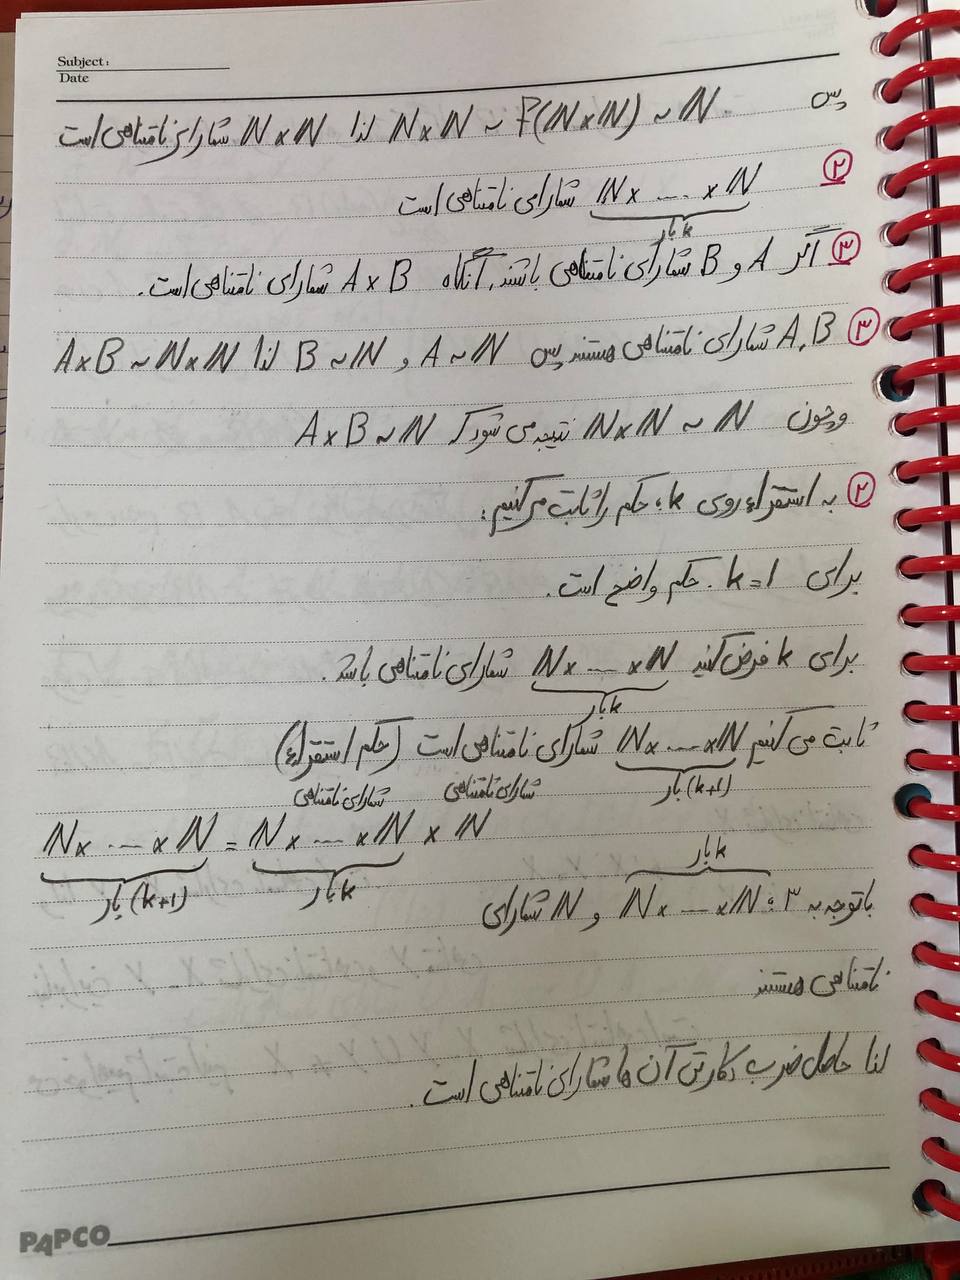 Subject:
Date
پس N×N ~ f(N×N) ~ N لذا N×N شمارای نامتناهی است
۲ N× ... ×N شمارای نامتناهی است
k بار
۳ اگر A و B شمارای نامتناهی باشند، آنگاه A×B شمارای نامتناهی است.
۳ A,B شمارای نامتناهی هستند پس A~N و B~N لذا A×B~N×N
و چون N×N ~ N نتیجه می شود که A×B~N
۲ به استقراء روی k، حکم را ثابت می کنیم:
برای k=1. حکم واضح است.
برای k فرض کنید N× ... ×N شمارای نامتناهی باشد.
k بار
ثابت می کنیم N× ... ×N شمارای نامتناهی است (حکم استقراء)
(k+1) بار
شمارای نامتناهی شمارای نامتناهی
N× ... ×N = N× ... ×N × N
(k+1) بار k بار
k بار
با توجه به ۳؛ N× ... ×N و N شمارای
نامتناهی هستند
لذا حاصل ضرب دکارتی آن ها شمارای نامتناهی است.
PAPCO